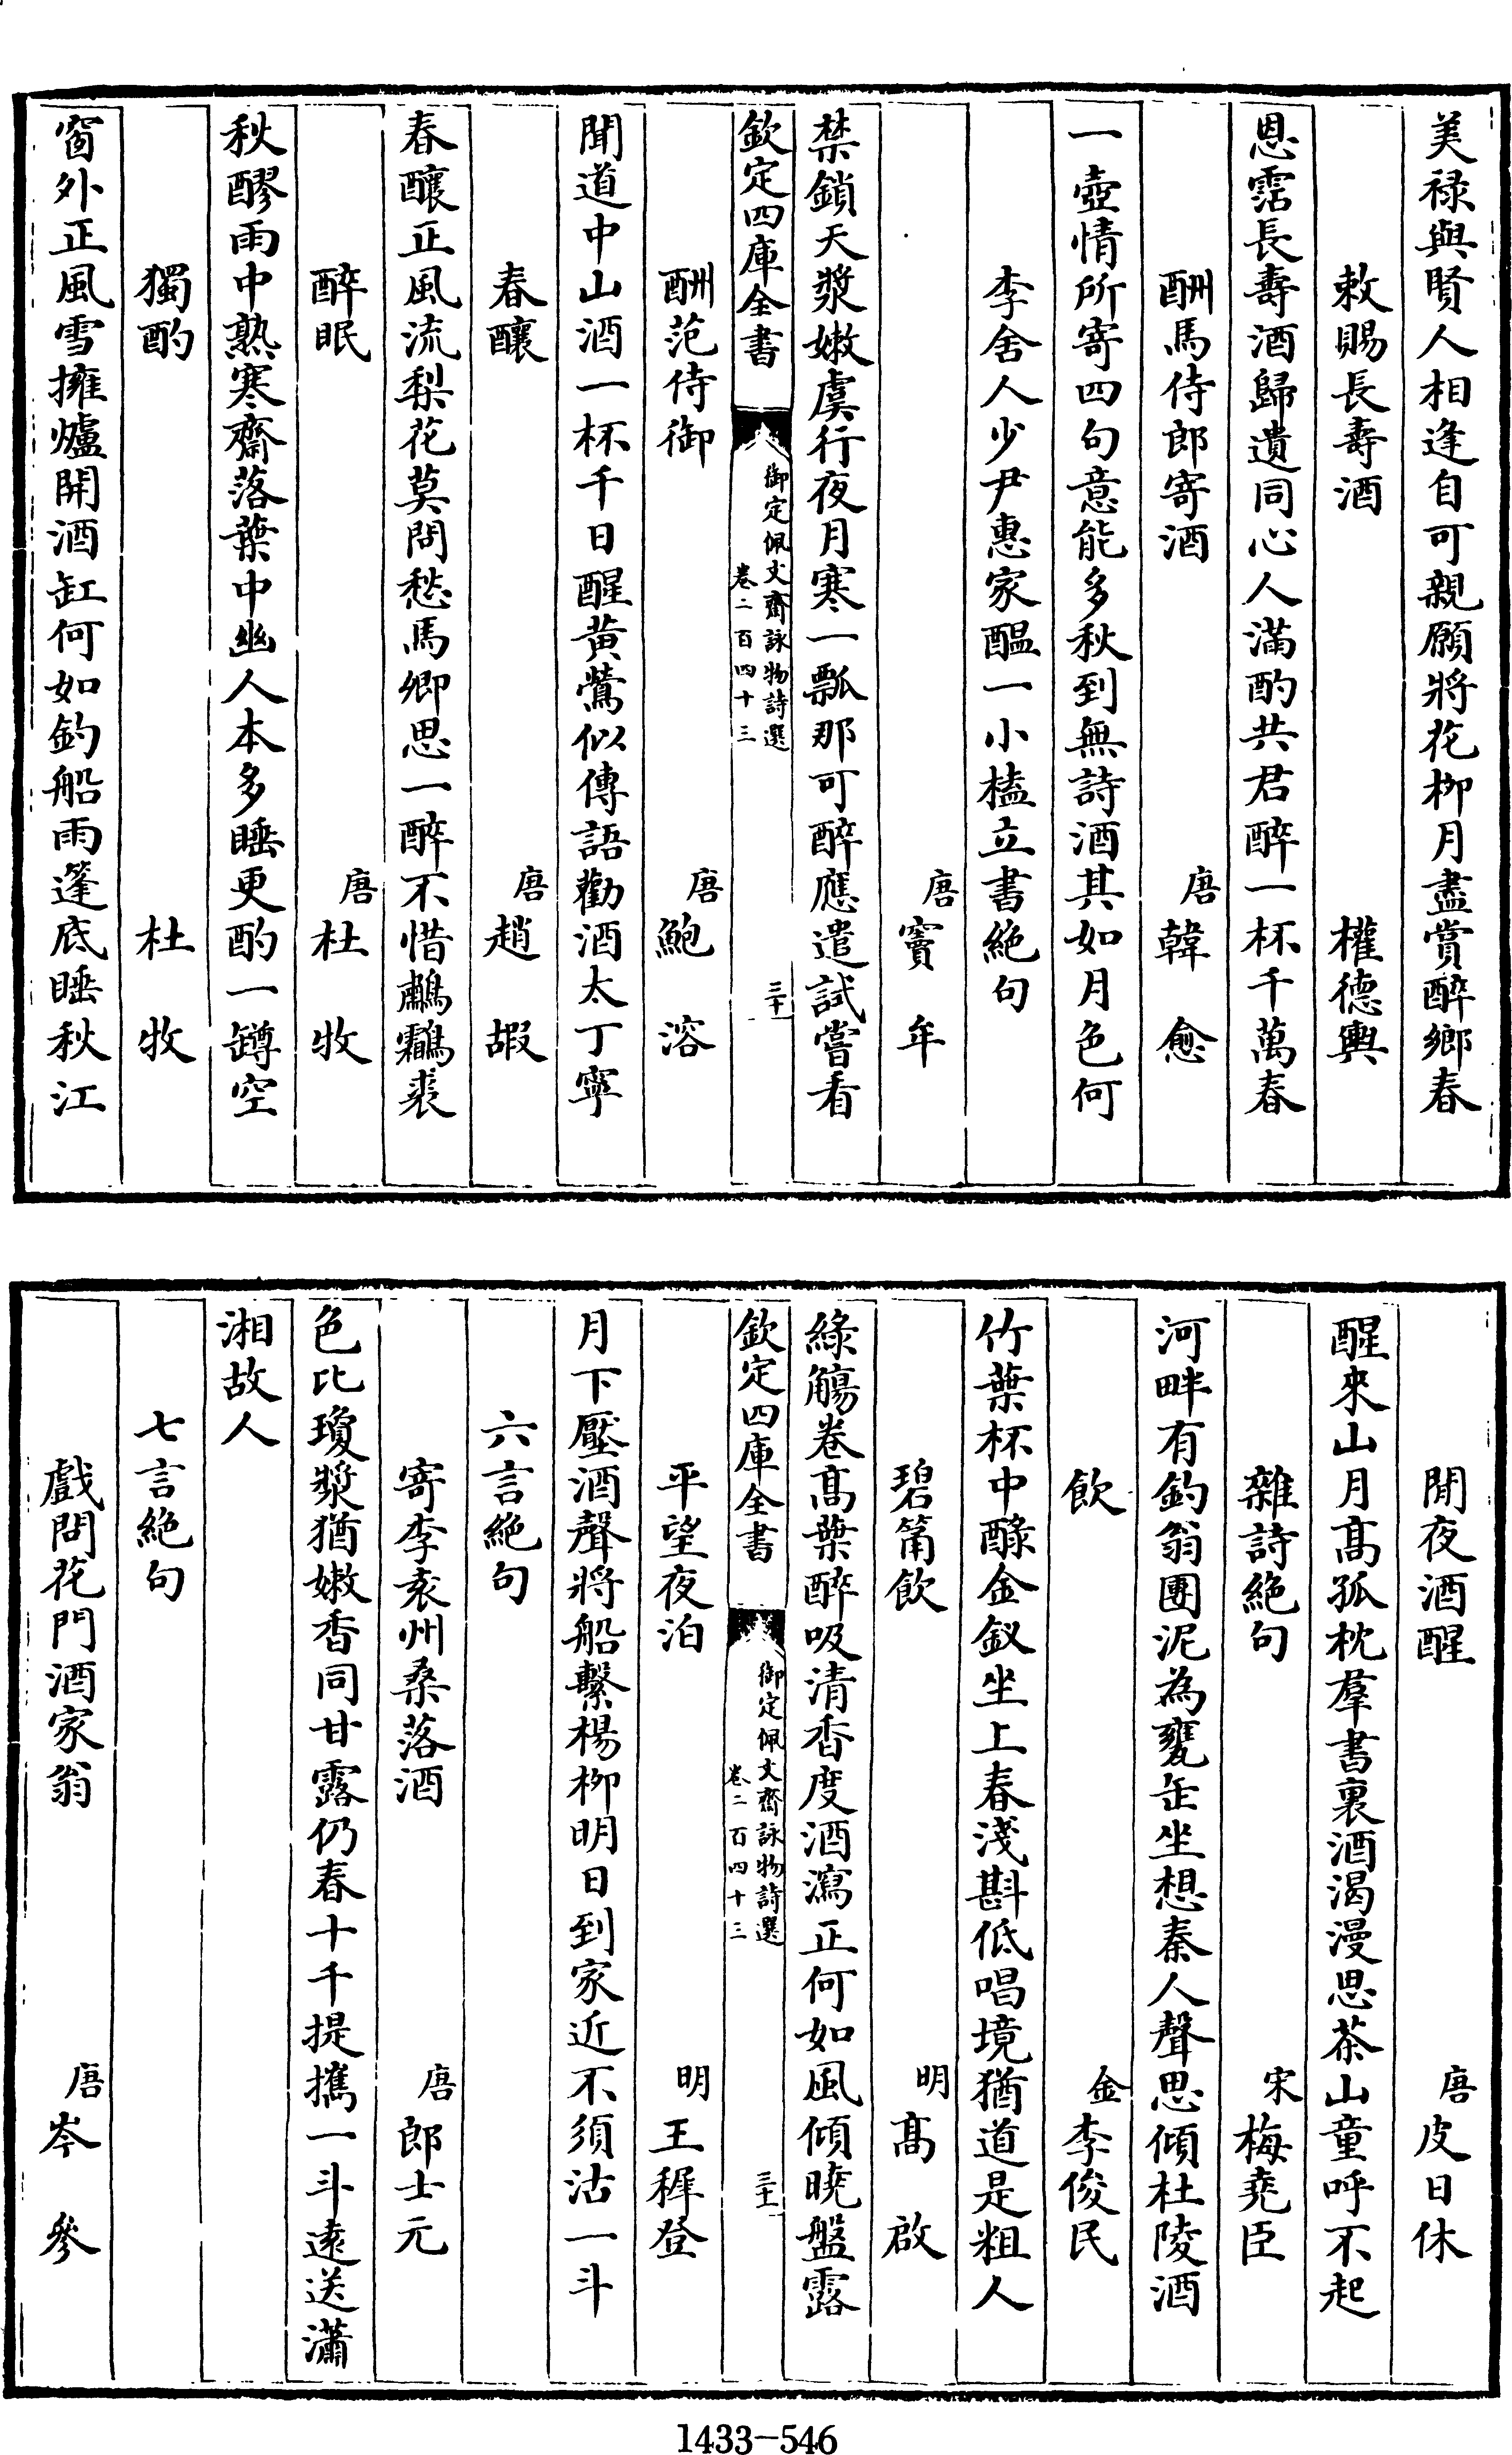 美禄與賢人相逢自可親願將花柳月盡賞醉鄉春
敕賜長壽酒　權德輿
恩霑長壽酒歸遺同心人滿酌共君醉一杯千萬春
酬馬侍郎寄酒　唐韓愈
一壺情所寄四句意能多秋到無詩酒其如月色何
李舍人少尹惠家醖一小榼立書絶句
唐竇牟
禁鎖天漿嫩虞行夜月寒一瓢那可醉應遣試嘗看
欽定四庫全書　御定佩文齋詠物詩選　卷二百四十三　三十
酬范侍御　唐鮑溶
聞道中山酒一杯千日醒黄鶯似傳語勸酒太丁寧
春釀　唐趙嘏
春釀正風流梨花莫問愁馬卿思一醉不惜鷫鸘裘
醉眠　唐杜牧
秋醪雨中熟寒齋落葉中幽人本多睡更酌一罇空
獨酌　杜牧
窗外正風雪擁爐開酒缸何如釣船雨篷底睡秋江
閒夜酒醒　唐皮日休
醒來山月髙孤枕羣書裏酒渴漫思茶山童呼不起
雜詩絶句　宋梅堯臣
河畔有釣翁團泥為甕缶坐想秦人聲思傾杜陵酒
飲　金李俊民
竹葉杯中醁金釵坐上春淺斟低唱境猶道是粗人
碧筩飲　明髙啟
綠觴卷髙葉醉吸清香度酒瀉正何如風傾曉盤露
欽定四庫全書　御定佩文齋詠物詩選　卷二百四十三　三十一
平望夜泊　明王穉登
月下壓酒聲將船繫楊柳明日到家近不須沽一斗
六言絶句
寄李袁州桑落酒　唐郎士元
色比瓊漿猶嫩香同甘露仍春十千提攜一斗逺送瀟
湘故人
七言絶句
戲問花門酒家翁　唐岑參
1433-546